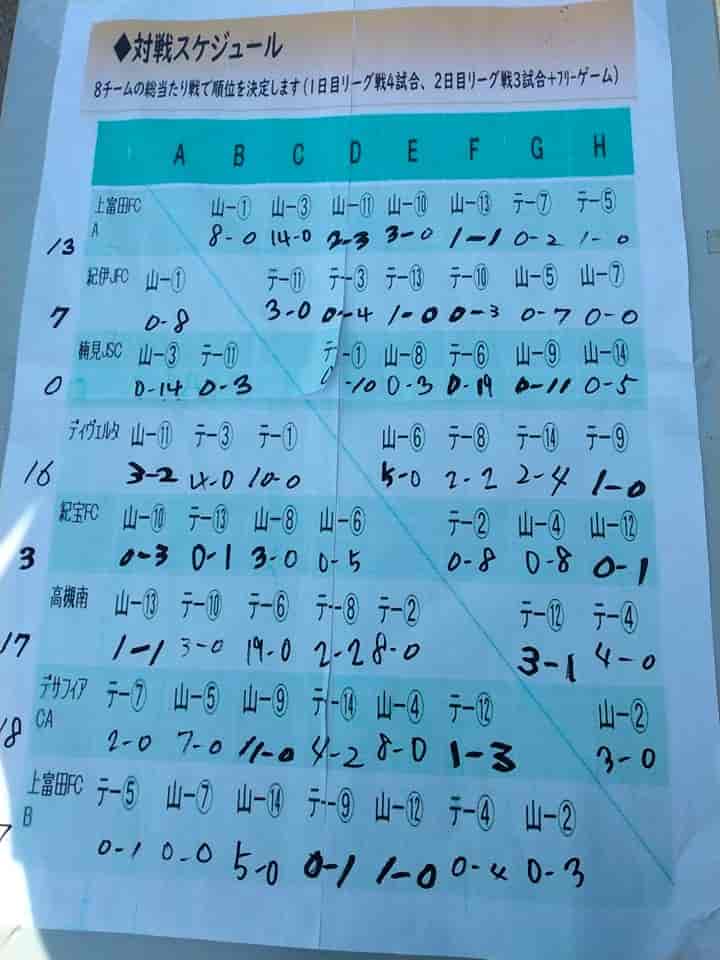 ◆対戦スケジュール
8チームの総当たり戦で順位を決定します(1日目リーグ戦4試合、2日目リーグ戦3試合+フリーゲーム)
A B C D E F G H
上富田FC 山-① 山-③ 山-⑪ 山-⑩ 山-⑬ テ-⑦ テ-⑤
A
13 8-0 14-0 2-3 3-0 1-1 0-2 1-0
紀伊JFC 山-① テ-⑪ テ-③ テ-⑬ テ-⑩ 山-⑤ 山-⑦
7 0-8 3-0 0-4 1-0 0-3 0-7 0-0
楠見JSC 山-③ テ-⑪ テ-① 山-⑧ テ-⑥ 山-⑨ 山-⑭
0 0-14 0-3 0-10 0-3 0-19 0-11 0-5
ディヴェルタ 山-⑪ テ-③ テ-① 山-⑥ テ-⑧ テ-⑭ テ-⑨
16 3-2 4-0 10-0 5-0 2-2 2-4 1-0
紀宝FC 山-⑩ テ-⑬ 山-⑧ 山-⑥ テ-② 山-④ 山-⑫
3 0-3 0-1 3-0 0-5 0-8 0-8 0-1
高槻南 山-⑬ テ-⑩ テ-⑥ テ-⑧ テ-② テ-⑫ テ-④
17 1-1 3-0 19-0 2-2 8-0 3-1 4-0
デサフィア テ-⑦ 山-⑤ 山-⑨ テ-⑭ 山-④ テ-⑫ 山-②
CA
18 2-0 7-0 11-0 4-2 8-0 1-3 3-0
上富田FC テ-⑤ 山-⑦ 山-⑭ テ-⑨ 山-⑫ テ-④ 山-②
B
7 0-1 0-0 5-0 0-1 1-0 0-4 0-3